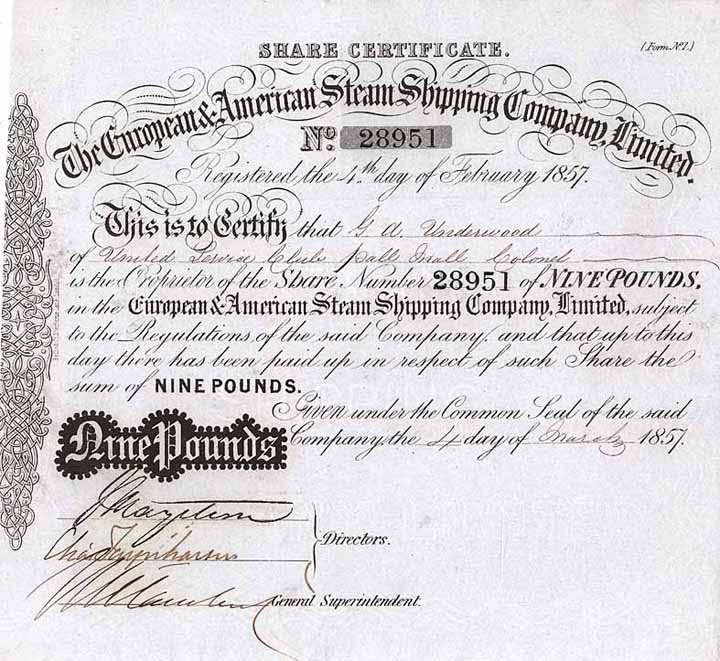 SHARE CERTIFICATE.
(Form No. 1.)
The European & American Steam Shipping Company, Limited.
No. 28951
Registered the 4th day of February 1857.
This is to Certify that G A Underwood
of United Service Club Pall Mall Colonel
is the Proprietor of the Share Number 28951 of NINE POUNDS,
in the European & American Steam Shipping Company, Limited, subject
to the Regulations of the said Company, and that up to this
day there has been paid up in respect of such Share the
sum of NINE POUNDS.
Given under the Common Seal of the said
Nine Pounds
Company, the 4 day of March 1857.
Directors.
General Superintendent.